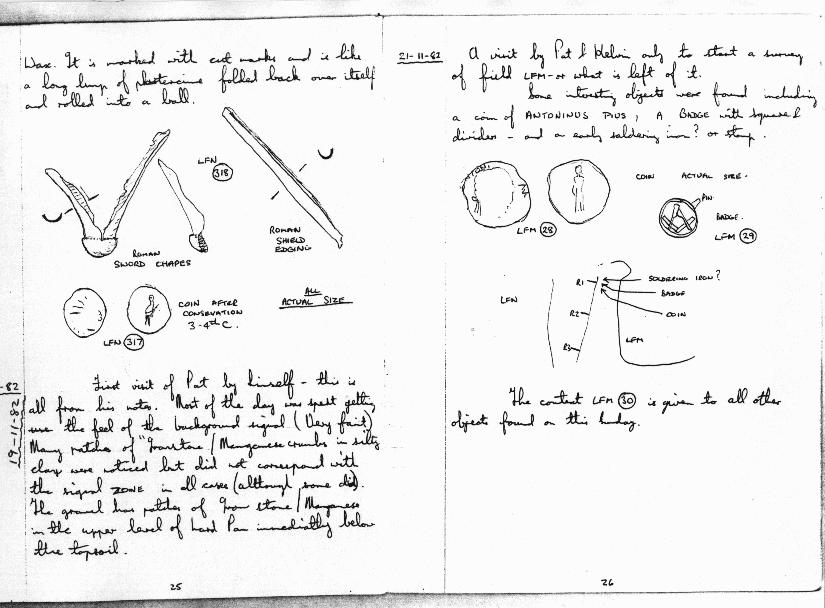 Wax. It is marked with cut marks and is like
a long lump of plastercine folded back over itself
and rolled into a ball.
LFN 318
ROMAN
SWORD CHAPES
ROMAN
SHIELD
EDGING
COIN AFTER
CONSERVATION
3-4th C.
LFN 317
ALL
ACTUAL SIZE
-82
19-11-82
First visit of Pat by himself - this is
all from his notes. Most of the day was spent getting
use the feel of the background signal (Very faint)
Many patches of "Ironstone / Manganese crumbs in silty
clay were noticed but did not correspond with
the signal ZONE in all cases (although some did).
The gravel has patches of Iron stone / Manganese
in the upper level of Hard Pan immediatly below
the topsoil.
25
21-11-82
A visit by Pat & Kelvin only to start a survey
of field LFM - or what is left of it.
Some interesting objects were found including
a coin of ANTONINUS PIUS, A BADGE with square &
dividers - and an early soldering iron? or stamp.
COIN ACTUAL SIZE.
LFM 28
PIN
BADGE.
LFM 29
LFN
R1
R2
R3
SOLDERING IRON?
BADGE
COIN
LFM
The context LFM 30 is given to all other
objects found on this Sunday.
26